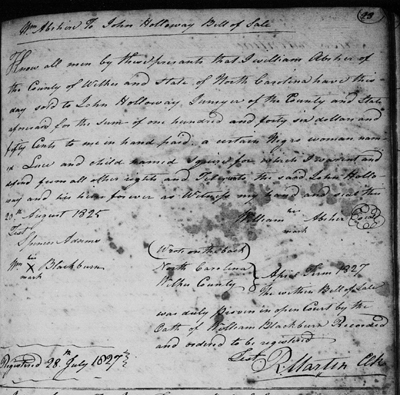 Wm Abshire To John Holloway Bill of Sale
Know all men by these presents that I William Abshire of
the County of Wilkes and State of North Carolina have this
day sold to John Holloway of the County and State
aforesaid for the sum of one hundred and forty six dollars and
fifty Cents to me in hand paid a certain Negro woman name
Luce and child named for which I warrant and
from all other rights and the said John Hollo
way and his heirs forever as Witness my hand and seal the
August 1825
William his Abshire
mark
Test
Spencer Adams
Wm his X Blackburn
mark
(Wrote on the back)
North Carolina
Wilkes County
Term 1827
The within Bill of Sale
was duly Proven in open Court by the
Oath of William Blackburn Recorded
and ordered to be registered
Test
R. Martin Clk
Registered 28th July 1827